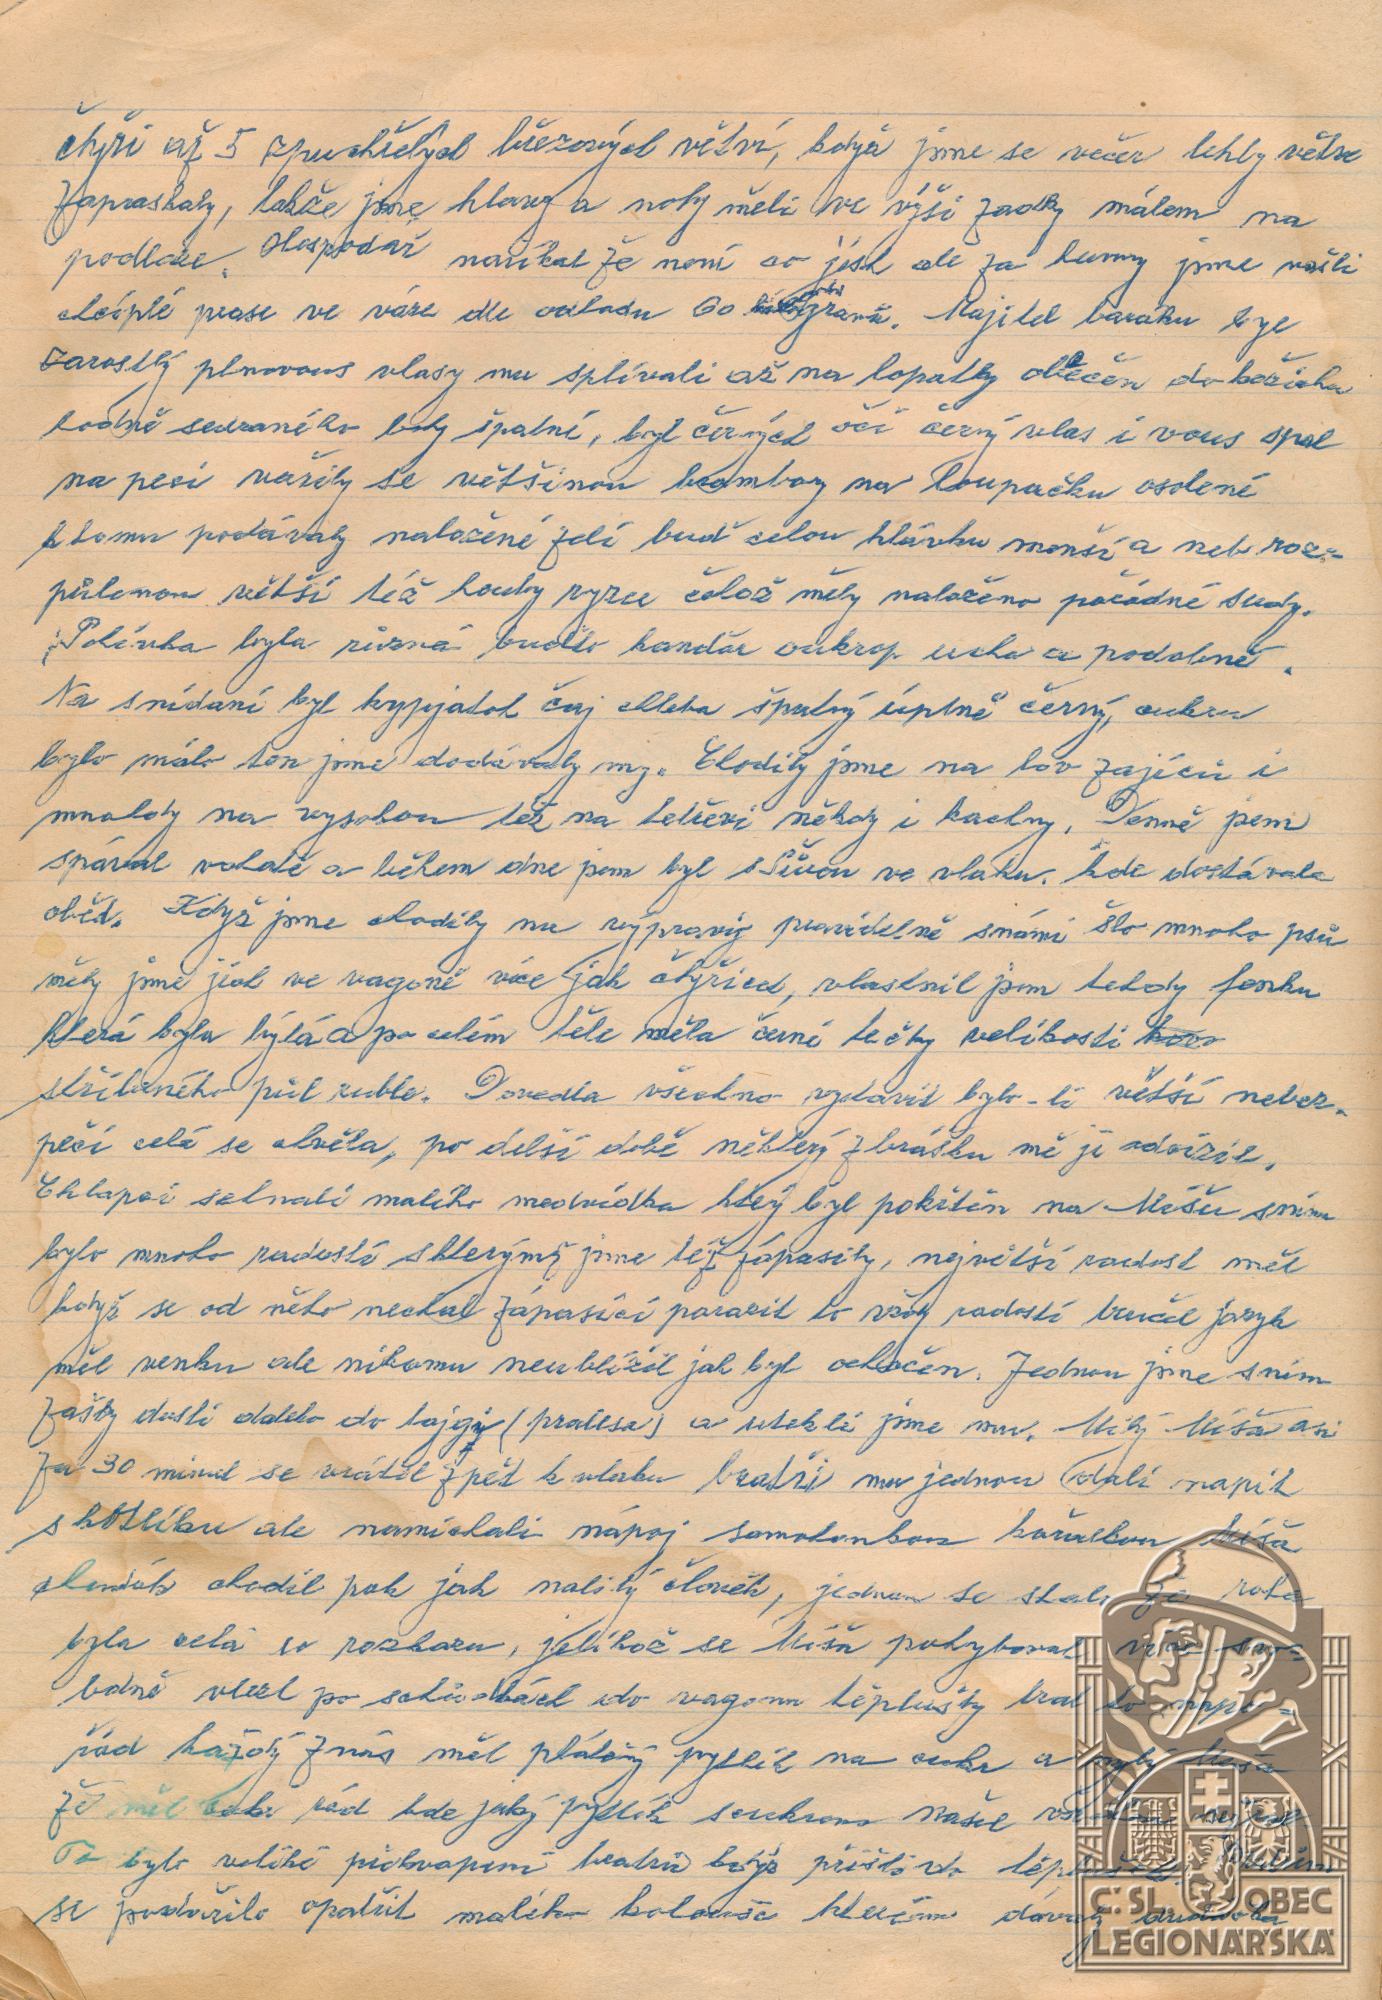 čtyři až 5 zpuchřelých březových větví, když jsme se večer lehly větve
zapraskaly, takže jsme hlavy a nohy měli ve výši zadky málem na
podlaze. Hospodář naříkal že není co jíst ale za kunny jsme našli
chcíplé prase ve váze dle odhadu 60 gramů. Majitel baráku byl
zarostlý plnovous vlasy mu splívali až na lopatky oblečen do kožichu
hodně sedraného boty špatné, byl černých očí černý vlas i vous spal
na peci vařily se většinou brambory na loupačku osolené
k tomu podávaly naložené zelí buď celou hlávku menší a neb roz-
půlenou větší též houby ryzce čehož měly naloženo pořádné sudy.
Polévka byla různá buďto kandár oukrop ucha a podobně.
Na snídani byl kypjatok čaj chleba špatný úplně černý, cukru
bylo málo ten jsme dodávaly my. Chodily jsme na lov zajíců i
mnohdy na vysokou též na tetřevi někdy i kachny. Denně jsem
spával v chatě a během dne jsem byl s Šivou ve vlaku. kde dostávala
oběd. Když jsme chodily na výpravy pravidelně snámi šlo mnoho psů
měly jsme jich ve vagoně více jak čtyřicet, vlastnil jsem tehdy fenku
která byla býlá a po celém těle měla černé tečky velikosti
stříbrného půl ruble. Dovedla všechno vystavit bylo-li větší nebez-
pečí celá se chvěla, po delší době některý z brášků mě ji odcizil.
Chlapci sehnali malího medvídka který byl pokřtěn na Míšu sním
bylo mnoho radosti s kterýmž jsme též zápasily, největší radost měl
když se od něho nechal zápasící porazit to vždy radostí bručel jazyk
měl venku ale nikomu neublížil jak byl ochočen. Jednou jsme sním
zašly dosti daleko do tajgy (pralesa) a utekli jsme mu. Milý Míša asi
za 30 minut se vrátil zpět k vlaku bratři mu jednou dali napít
s kotlíku ale namíchali nápoj samohonkou kořalkou Míša
chudák chodil pak jak nalitý člověk, jednou se stalo že rota
byla celá v rozkazu, jelikož se Míša pohyboval více svo-
bodně vlezl po schůdkách do vagonu těplušky bral to napo-
řád každý z nás měl plátěný pytlík na cukr a milý Míša
že měl cukr rád kde jaký pytlík s cukrem našel
To bylo veliké překvapení bratrů když přišli do těplušky.
se podařilo opatřit malého kolouše kterému dávaly
Č. SL. OBEC
LEGIONÁŘSKÁ